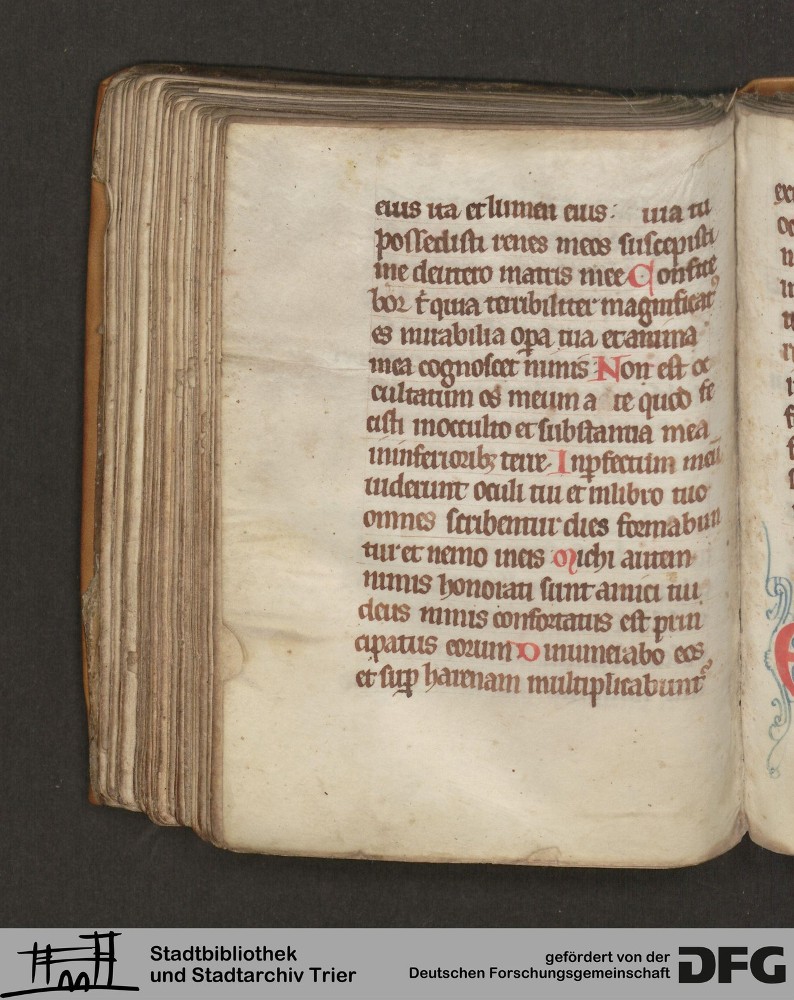 eius ita et lumen eius: uia tu
possedisti renes meos suscepisti
me deutero matris mee Confite
bor t̃ quia terribiliter magnificat᷒
es mirabilia oꝑa tua et anima
mea cognoscet nimis Non est oc
cultatum os meum a te quod fe
cisti inocculto et substantia mea
ininferioribꝫ terre. Inꝑfectum meū
uiderunt oculi tui et inlibro tuo
omnes scribentur dies formabun
tur et nemo ineis Michi autem
nimis honorati sunt amici tui
deus nimis confortatus est prin
cipatus eorum Dinumerabo eos
et suꝑ harenam multiplicabunt᷒
Stadtbibliothek
und Stadtarchiv Trier
gefördert von der
Deutschen Forschungsgemeinschaft
DFG